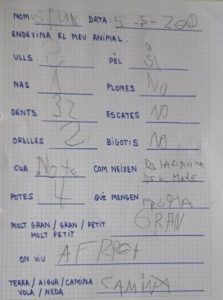 NOM: GINA DATA: 5-3-200
ENDEVINA EL MEU ANIMAL.
ULLS 2 PÈL SI
NAS 1 PLOMES NO
DENTS 32 ESCATES NO
ORELLES 2 BIGOTIS NO
CUA NO TE COM NEIXEN DE LA PANXA DE LA MARE
POTES 4 QUÈ MENGEN FRUITA
MOLT GRAN / GRAN / PETIT GRAN
MOLT PETIT
ON VIU AFRICA
TERRA / AIGUA / CAMINA CAMINA
VOLA / NEDA